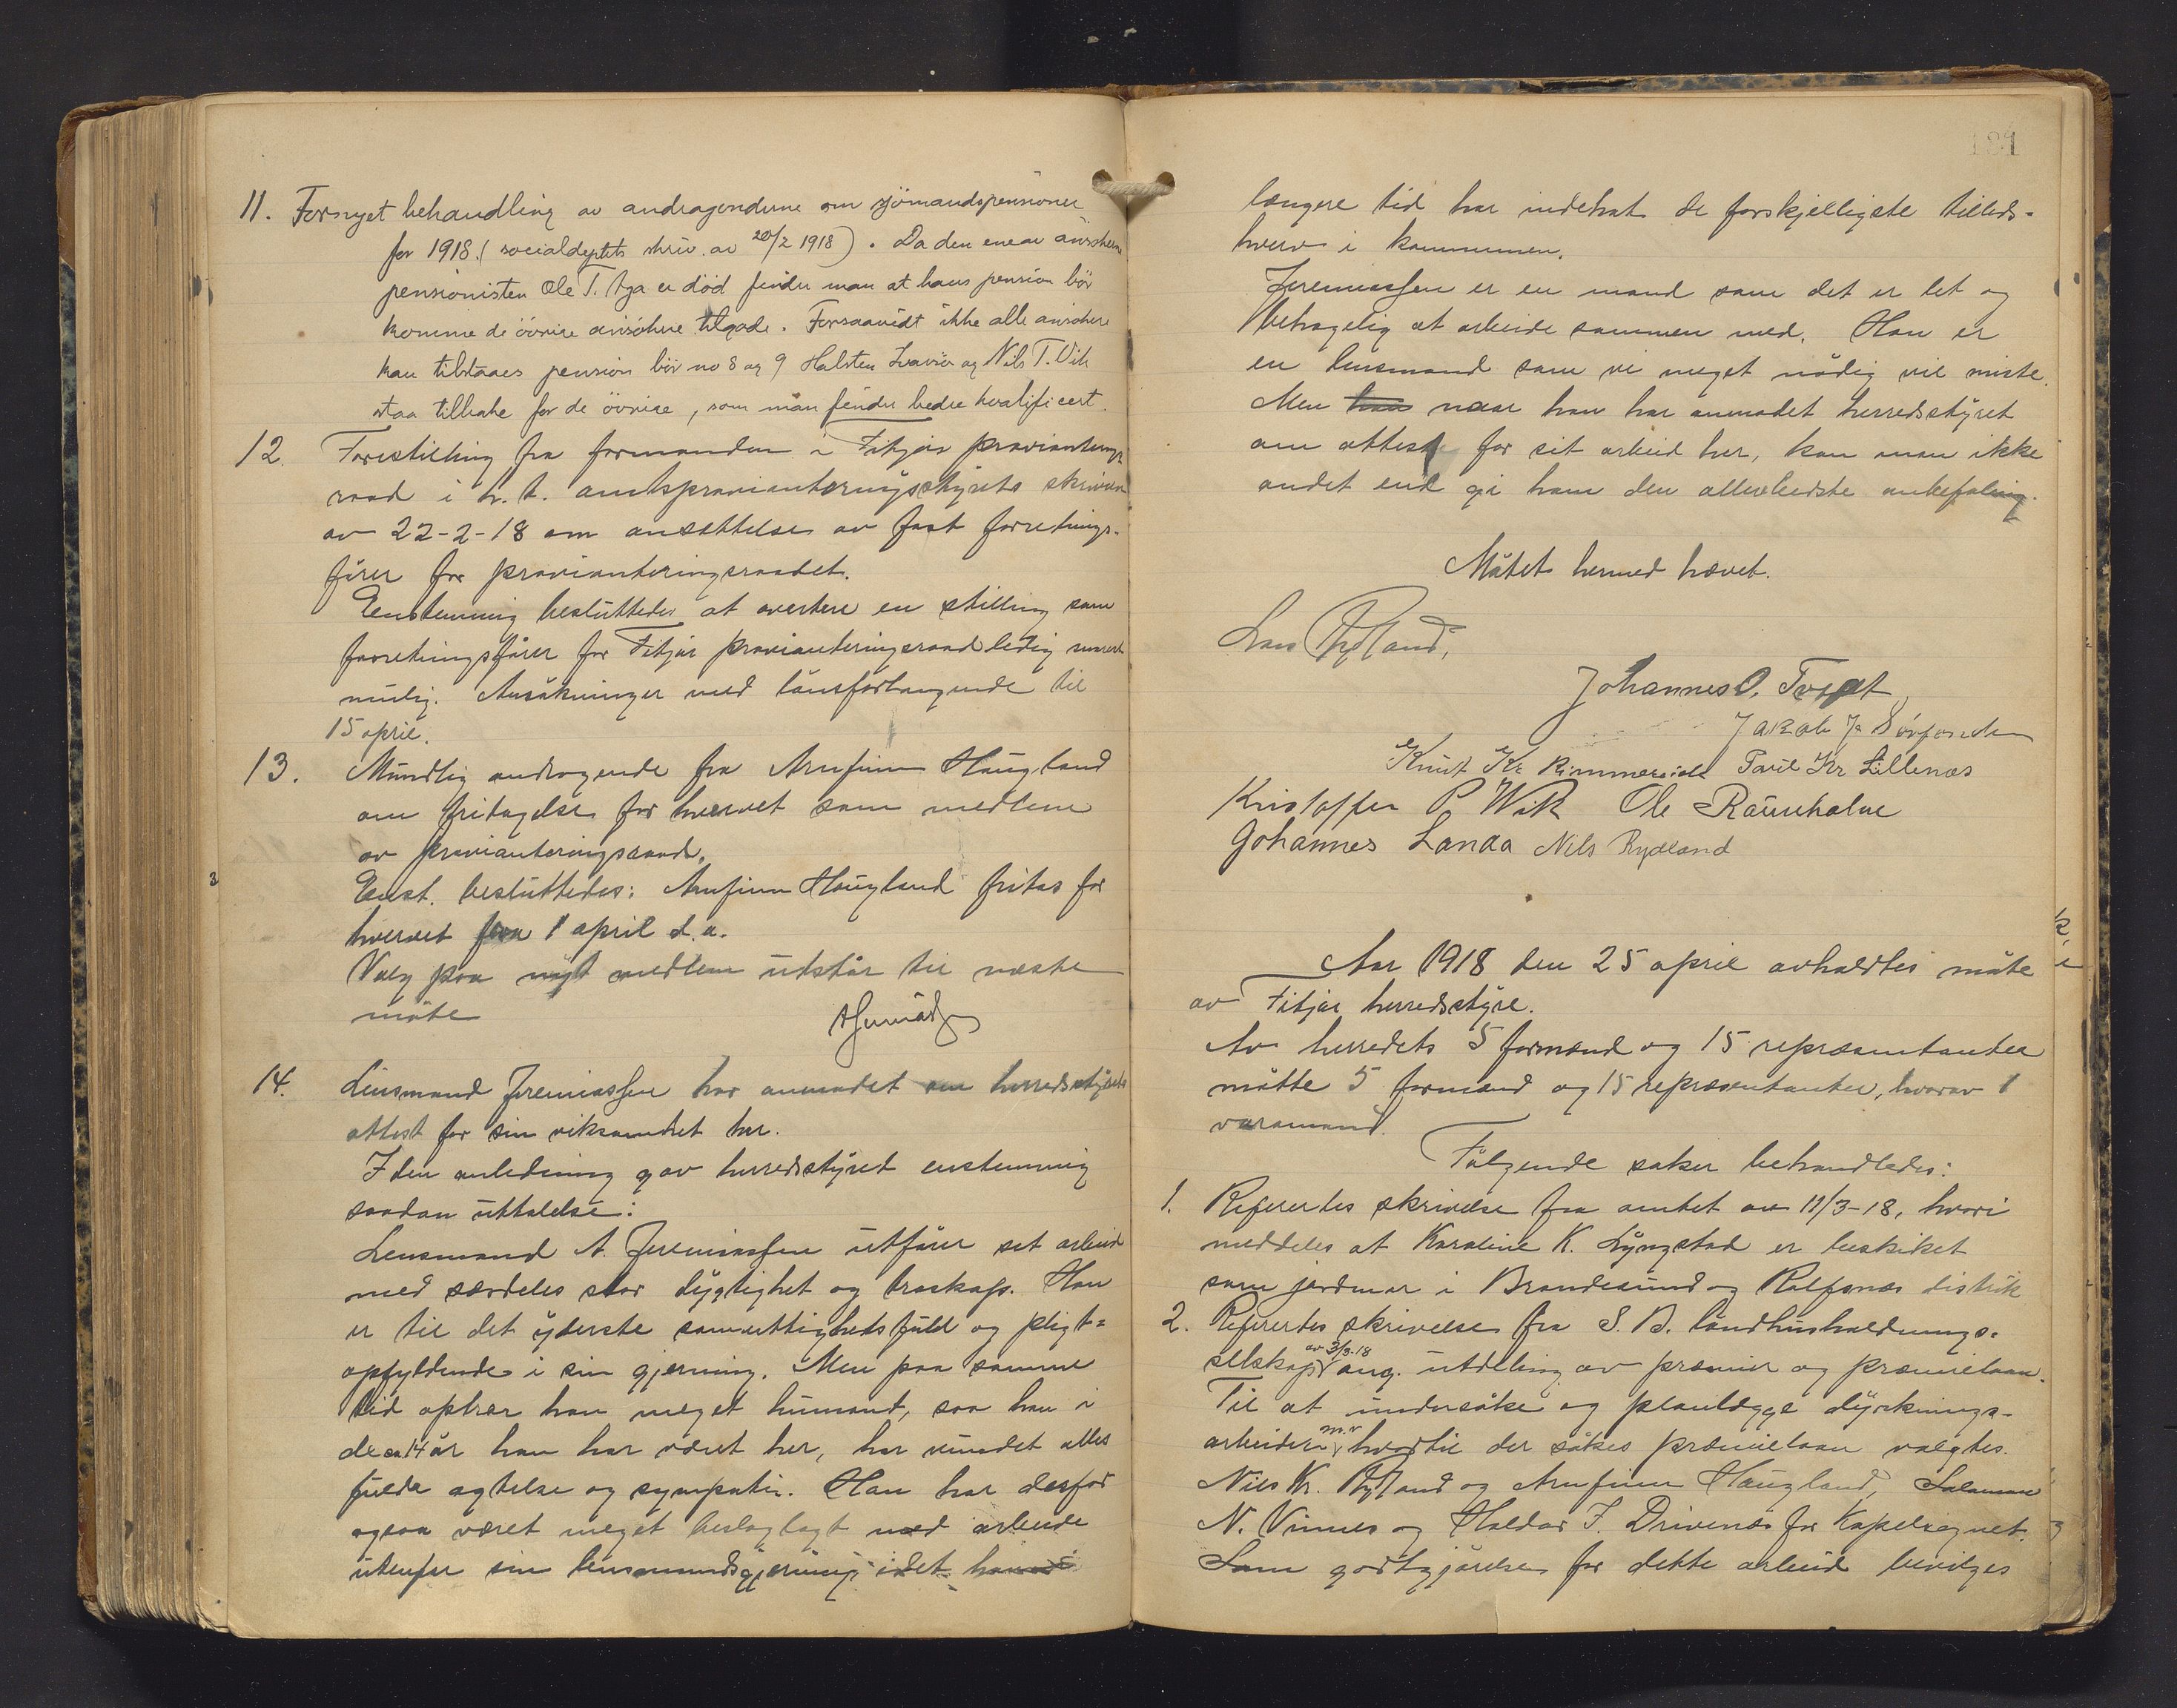 11. Fornyet behandling av andragenderne om sjömandspensioner
for 1918 (socialdeptets skriv. av 20/2 1918). Da den ene av ansökerne
pensionisten Ole T. Aga er död finder man at hans pension bör
komme de övrige ansökere tilgode. Forsaavidt ikke alle ansökere
kan tilstaaes pension bör no 8 og 9 Halsten og Nils T. Vik
staa tilbake for de övrige, som man finder bedre kvalificert.
12. Forestilling fra formanden i Fitjar provianterings-
raad i h. t. amtsprovianteringsstyrets skrivelse
av 22-2-18 om ansættelse av fast forretnings-
förer for provianteringsraadet.
Enstemmig besluttedes at avertere en stilling som
forretningsförer for Fitjar provianteringsraad ledig snarest
mulig. Ansökninger med lönsforlangende til
15 april.
13. Mundtlig andragende fra Arnfinn Haugland
om fritagelse for hvervet som medlem
av provianteringsraad.
Enst. besluttedes: Arnfinn Haugland fritas for
hvervet fra 1 april d.a.
Valg paa nyt medlem utstår til næste
möte
14. Lensmand Jeremiassen har anmodet om herredsstyrets
attest for sin virksomhet her.
I den anledning gav herredsstyret enstemmig
saadan uttalelse:
Lensmand A. Jeremiassen utförer sit arbeid
med særdeles stor dygtighet og troskap. Han
er til det yderste samvittighedsfuld og pligt-
opfyldende i sin gjerning. Men paa samme
tid optrær han meget humant, saa han i
de ca 14 år han har været her, har vundet alles
fulde agtelse og sympati. Han har desfor
ogsaa været meget beslaglagt med arbeide
utenfor sin lensmandsgjerning, idet han
191
længere tid har indehat de forskjelligste tillids-
hverv i kommunen.
Jeremiassen er en mand som det er let og
behagelig at arbeide sammen med. Han er
en lensmand som vi meget nödig vil miste.
Men han naar han har anmodet herredsstyret
om attest for sit arbeid her, kan man ikke
andet end gi ham den allerbedste anbefaling.
Mötet hermed hævet.
Lars Rydland,
Johannes O. Tveit
Jakob J. Sörfonden
Knut Kr Rimmereid Paul Kr Lillenæs
Kristoffer P Wik Ole Raunholm
Johannes Landa Nils Rydland
Aar 1918 den 25 april avholdtes möte
av Fitjar herredsstyre.
Av herredets 5 formænd og 15 repræsentanter
mötte 5 formænd og 15 repræsentanter, hvorav 1
varamand.
Fölgende saker behandledes:
1. Refertes skrivelse fra amtet av 11/3-18, hvori
meddeles at Karoline K. Lyngstad er beskiket
som jordmor i Brandesund og Rolfsnæs distrikt
2. Refertes skrivelse fra S. B. landhusholdnings-
selskap av 3/3-18 ang. utdeling av præmier og præmielaan.
Til at undersöke og planlægge dyrknings-
arbeider m.v. hvortil der sökes præmielaan valgtes
Nils Kr. Rydland og Arnfinn Haugland, Salamon
N. Vinnes og Haldor J. Drivenes for Kapelsognet.
Som godtgjörelse for dette arbeid bevilges